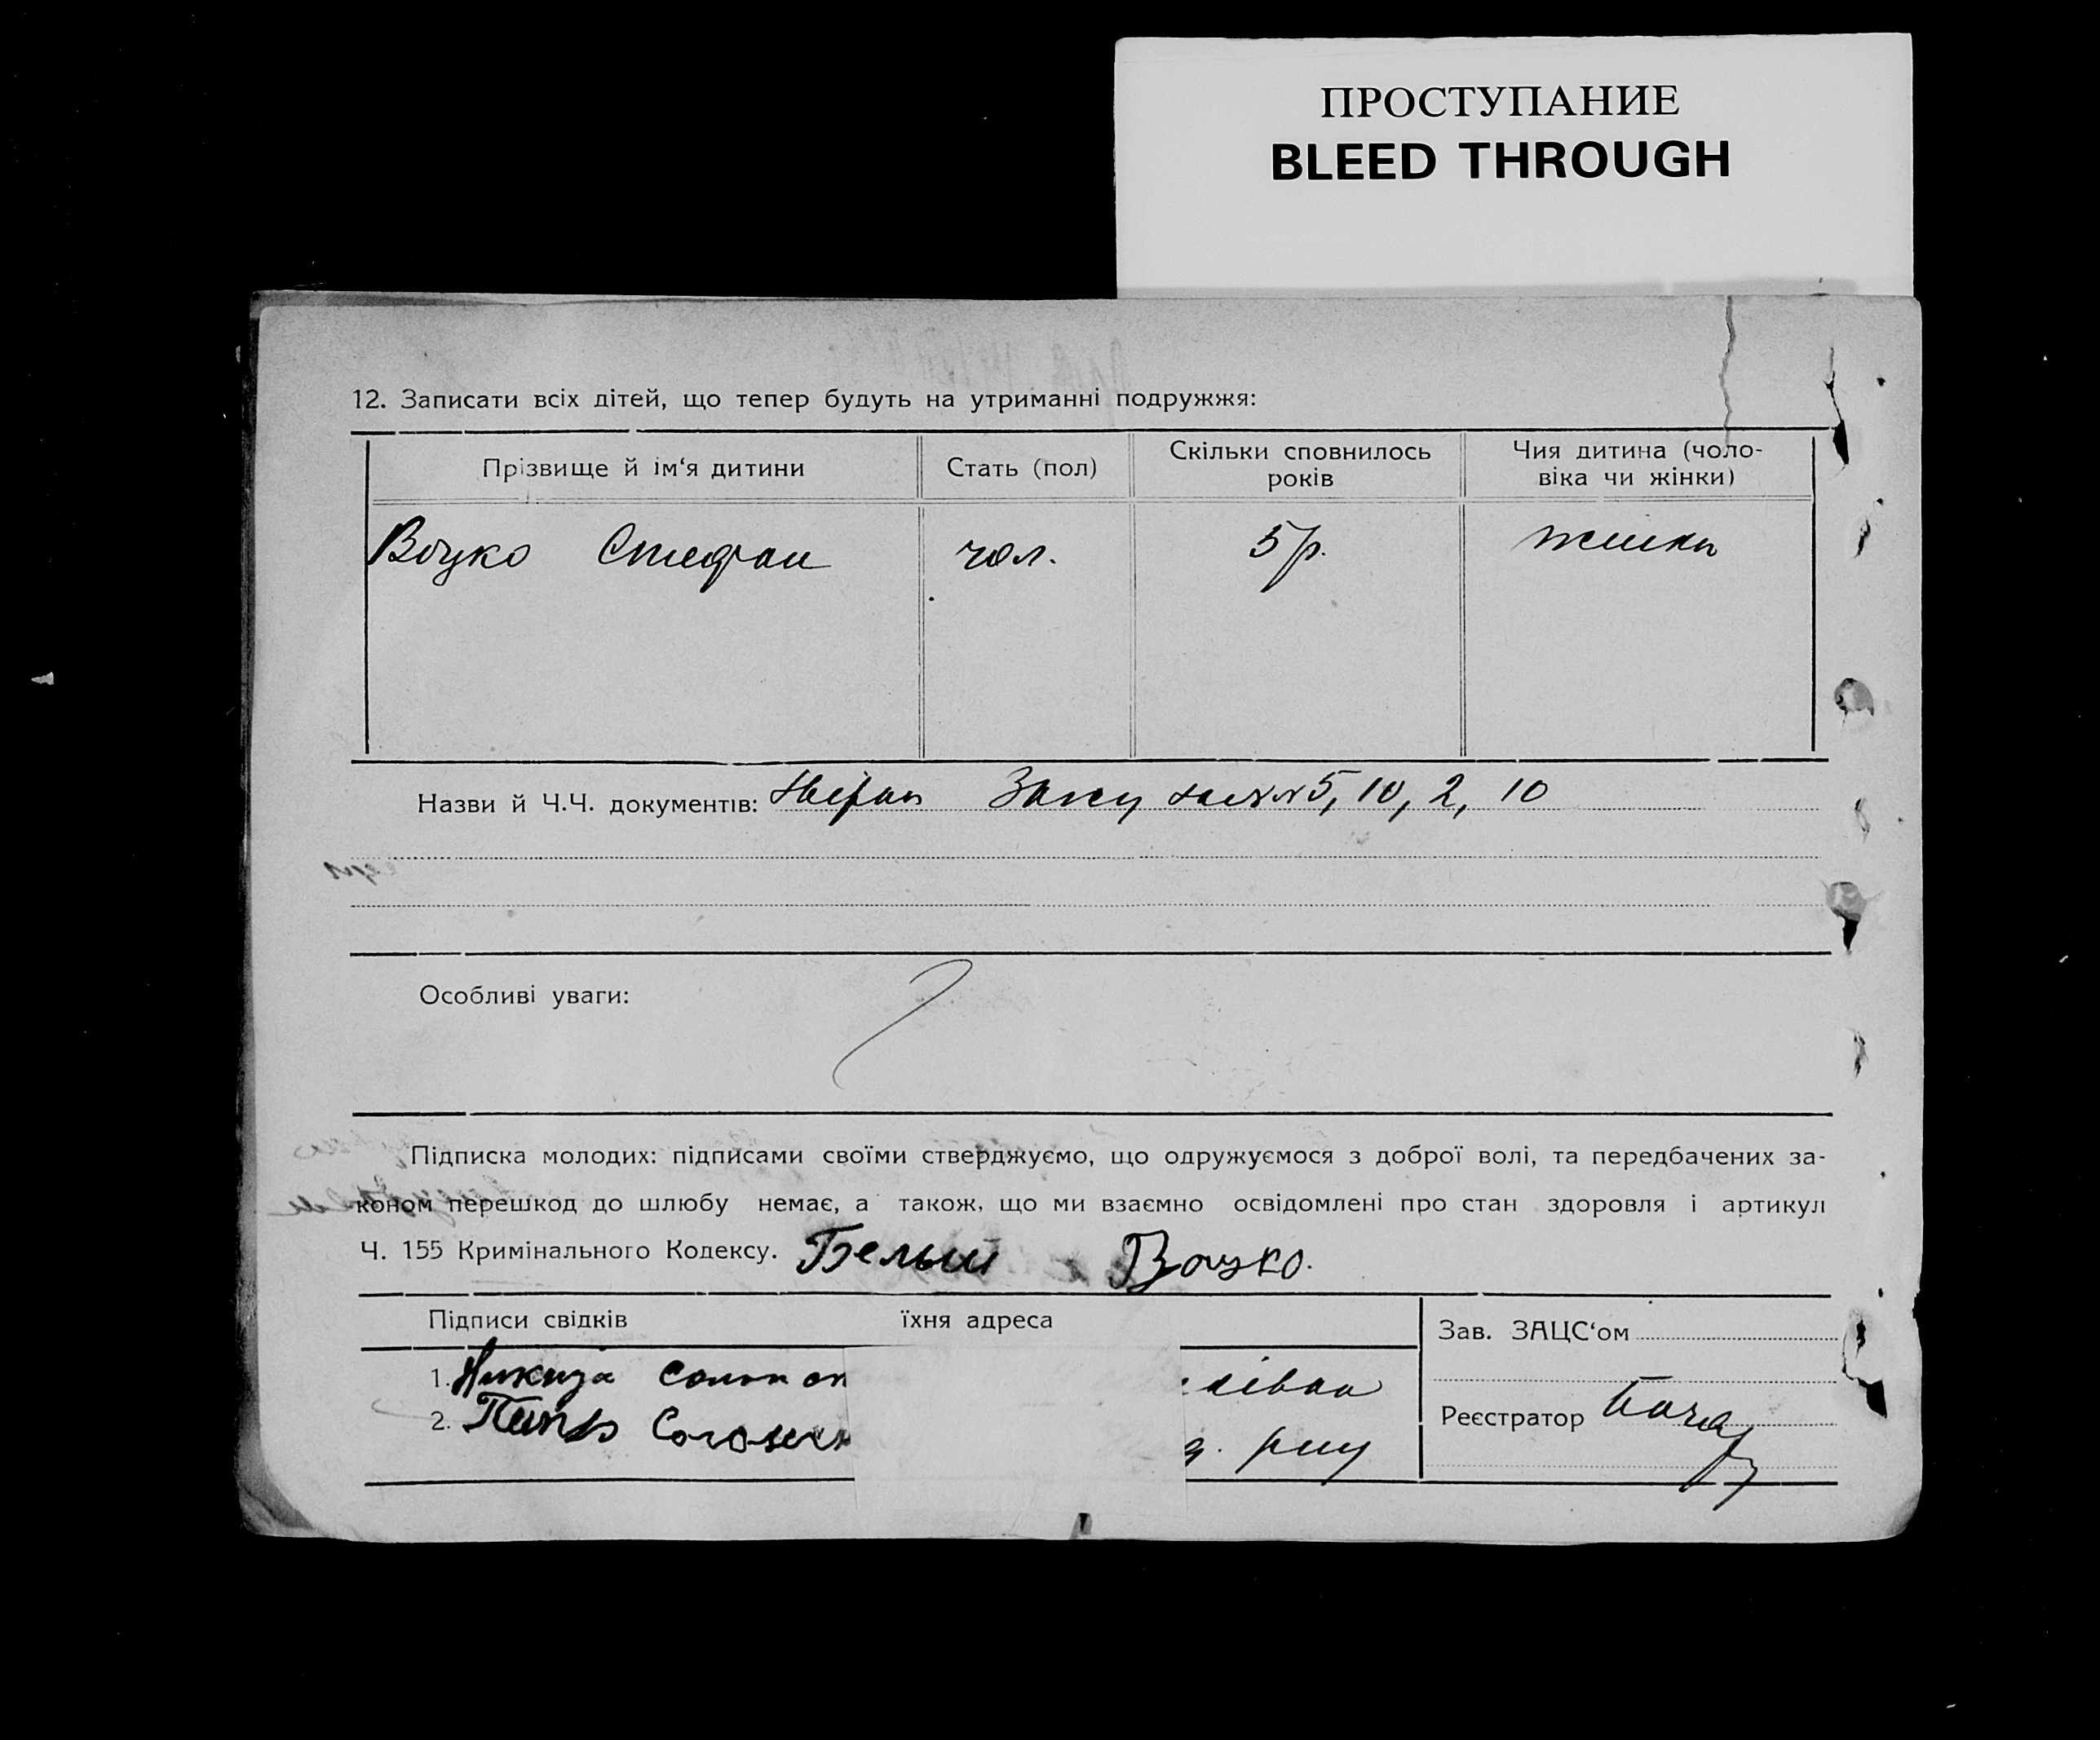 ПРОСТУПАНИЕ
BLEED THROUGH
12. Записати всіх дітей, що тепер будуть на утриманні подружжя:
Прізвище й ім‘я дитини Стать (пол) Скільки сповнилось років Чия дитина (чоло-віка чи жінки)
Воуко Стефан чол. 5 р. жінки
Назви й Ч.Ч. документів: 5, 10, 2, 10
Особливі уваги:
Підписка молодих: підписами своїми стверджуємо, що одружуємося з доброї волі, та передбачених за-
коном перешкод до шлюбу немає, а також, що ми взаємно освідомлені про стан здоровля і артикул
Ч. 155 Кримінального Кодексу. Белый Воуко.
Підписи свідків їхня адреса
Зав. ЗАЦС‘ом
1.
2.
Реєстратор